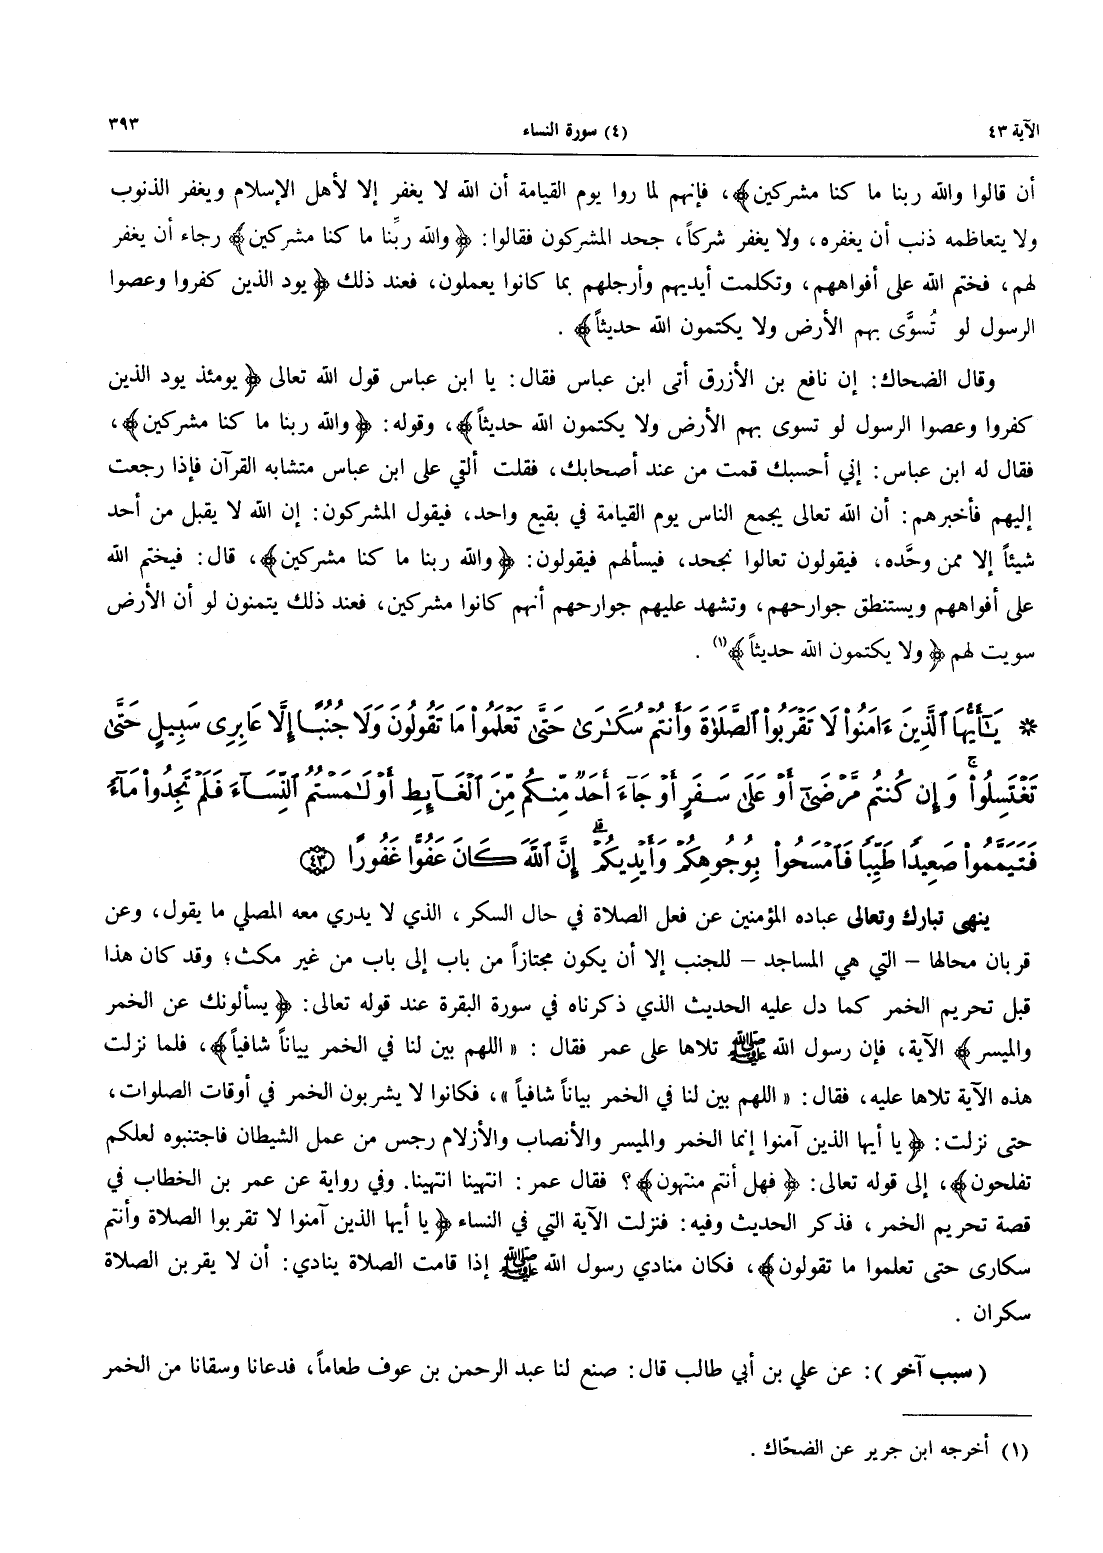 الآية ٤٣ (٤) سورة النساء ٣٩٣
أن قالوا والله ربنا ما كنا مشركين﴾، فإنهم لما روا يوم القيامة أن الله لا يغفر إلا لأهل الإسلام ويغفر الذنوب
ولا يتعاظمه ذنب أن يغفره، ولا يغفر شركاً، جحد المشركون فقالوا: ﴿والله ربِّنا ما كنا مشركين﴾ رجاء أن يغفر
لهم، فختم الله على أفواههم، وتكلمت أيديهم وأرجلهم بما كانوا يعملون، فعند ذلك ﴿يود الذين كفروا وعصوا
الرسول لو تُسوَّى بهم الأرض ولا يكتمون الله حديثاً﴾ .
وقال الضحاك: إن نافع بن الأزرق أتى ابن عباس فقال: يا ابن عباس قول الله تعالى ﴿يومئذ يود الذين
كفروا وعصوا الرسول لو تسوى بهم الأرض ولا يكتمون الله حديثاً﴾، وقوله: ﴿والله ربنا ما كنا مشركين﴾،
فقال له ابن عباس: إني أحسبك قمت من عند أصحابك، فقلت ألقي على ابن عباس متشابه القرآن فإذا رجعت
إليهم فأخبرهم: أن الله تعالى يجمع الناس يوم القيامة في بقيع واحد، فيقول المشركون: إن الله لا يقبل من أحد
شيئاً إلا ممن وحَّده، فيقولون تعالوا نجحد، فيسألهم فيقولون: ﴿والله ربنا ما كنا مشركين﴾، قال: فيختم الله
على أفواههم ويستنطق جوارحهم، وتشهد عليهم جوارحهم أنهم كانوا مشركين، فعند ذلك يتمنون لو أن الأرض
سويت لهم ﴿ولا يكتمون الله حديثاً﴾(١) .
* يَـٰٓأَيُّهَا ٱلَّذِينَ ءَامَنُوا۟ لَا تَقْرَبُوا۟ ٱلصَّلَوٰةَ وَأَنتُمْ سُكَـٰرَىٰ حَتَّىٰ تَعْلَمُوا۟ مَا تَقُولُونَ وَلَا جُنُبًا إِلَّا عَابِرِى سَبِيلٍ حَتَّىٰ
تَغْتَسِلُوا۟ ۚ وَإِن كُنتُم مَّرْضَىٰٓ أَوْ عَلَىٰ سَفَرٍ أَوْ جَآءَ أَحَدٌ مِّنكُم مِّنَ ٱلْغَآئِطِ أَوْ لَـٰمَسْتُمُ ٱلنِّسَآءَ فَلَمْ تَجِدُوا۟ مَآءً
فَتَيَمَّمُوا۟ صَعِيدًا طَيِّبًا فَٱمْسَحُوا۟ بِوُجُوهِكُمْ وَأَيْدِيكُمْ ۗ إِنَّ ٱللَّهَ كَانَ عَفُوًّا غَفُورًا ﴿٤٣﴾
ينهى تبارك وتعالى عباده المؤمنين عن فعل الصلاة في حال السكر، الذي لا يدري معه المصلي ما يقول، وعن
قربان محالها - التي هي المساجد - للجنب إلا أن يكون مجتازاً من باب إلى باب من غير مكث؛ وقد كان هذا
قبل تحريم الخمر كما دل عليه الحديث الذي ذكرناه في سورة البقرة عند قوله تعالى: ﴿يسألونك عن الخمر
والميسر﴾ الآية، فإن رسول الله ﷺ تلاها على عمر فقال : « اللهم بين لنا في الخمر بياناً شافياً﴾، فلما نزلت
هذه الآية تلاها عليه، فقال: « اللهم بين لنا في الخمر بياناً شافياً »، فكانوا لا يشربون الخمر في أوقات الصلوات،
حتى نزلت: ﴿يا أيها الذين آمنوا إنما الخمر والميسر والأنصاب والأزلام رجس من عمل الشيطان فاجتنبوه لعلكم
تفلحون﴾، إلى قوله تعالى: ﴿فهل أنتم منتهون﴾؟ فقال عمر: انتهينا انتهينا. وفي رواية عن عمر بن الخطاب في
قصة تحريم الخمر، فذكر الحديث وفيه: فنزلت الآية التي في النساء ﴿يا أيها الذين آمنوا لا تقربوا الصلاة وأنتم
سكارى حتى تعلموا ما تقولون﴾، فكان منادي رسول الله ﷺ إذا قامت الصلاة ينادي: أن لا يقربن الصلاة
سكران .
( سبب آخر ): عن علي بن أبي طالب قال: صنع لنا عبد الرحمن بن عوف طعاماً، فدعانا وسقانا من الخمر
(١) أخرجه ابن جرير عن الضحّاك .